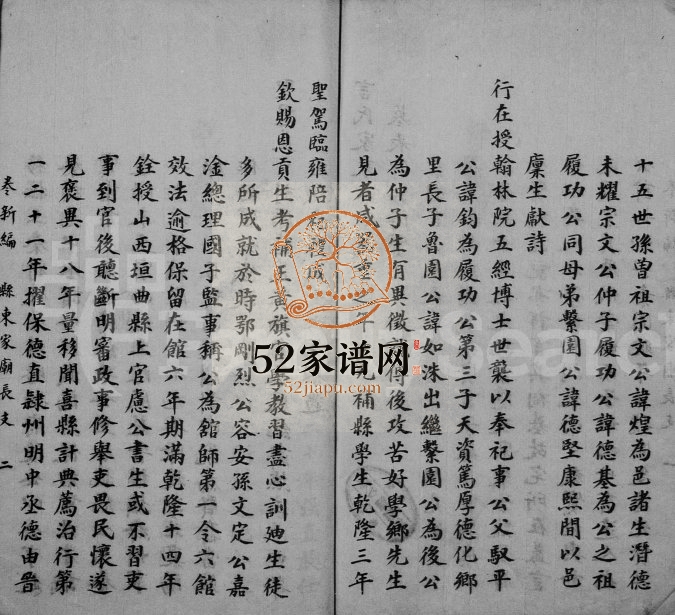 十五世孫曾祖宗文公諱煌為邑諸生潛德
未耀宗文公仲子履功公諱德基為公之祖
履功公同母弟繫園公諱德堅康熙間以邑
廩生獻詩
行在授翰林院五經博士世襲以奉祀事公父馭平
公諱鈞為履功公第三子天資篤厚德化鄉
里長子魯園公諱如洙出繼繫園公為後公
為仲子生有異徵
後攻苦好學鄉先生
見者咸
補縣學生乾隆三年
聖駕臨雍陪祀禮成
欽賜恩貢生考補正黃旗官學教習盡心訓迪生徒
多所成就於時鄂剛烈公容安孫文定公嘉
淦總理國子監事稱公為館師第一令六館
效法逾格保留在館六年期滿乾隆十四年
銓授山西垣曲縣上官慮公書生或不習吏
事到官後聽斷明審政事修舉吏畏民懷遂
見褒異十八年量移聞喜縣計典薦治行第
一二十一年擢保德直隸州明中丞德由晉
卷新編 縣東家廟長支 二
52家谱网
52jiapu.com
Search